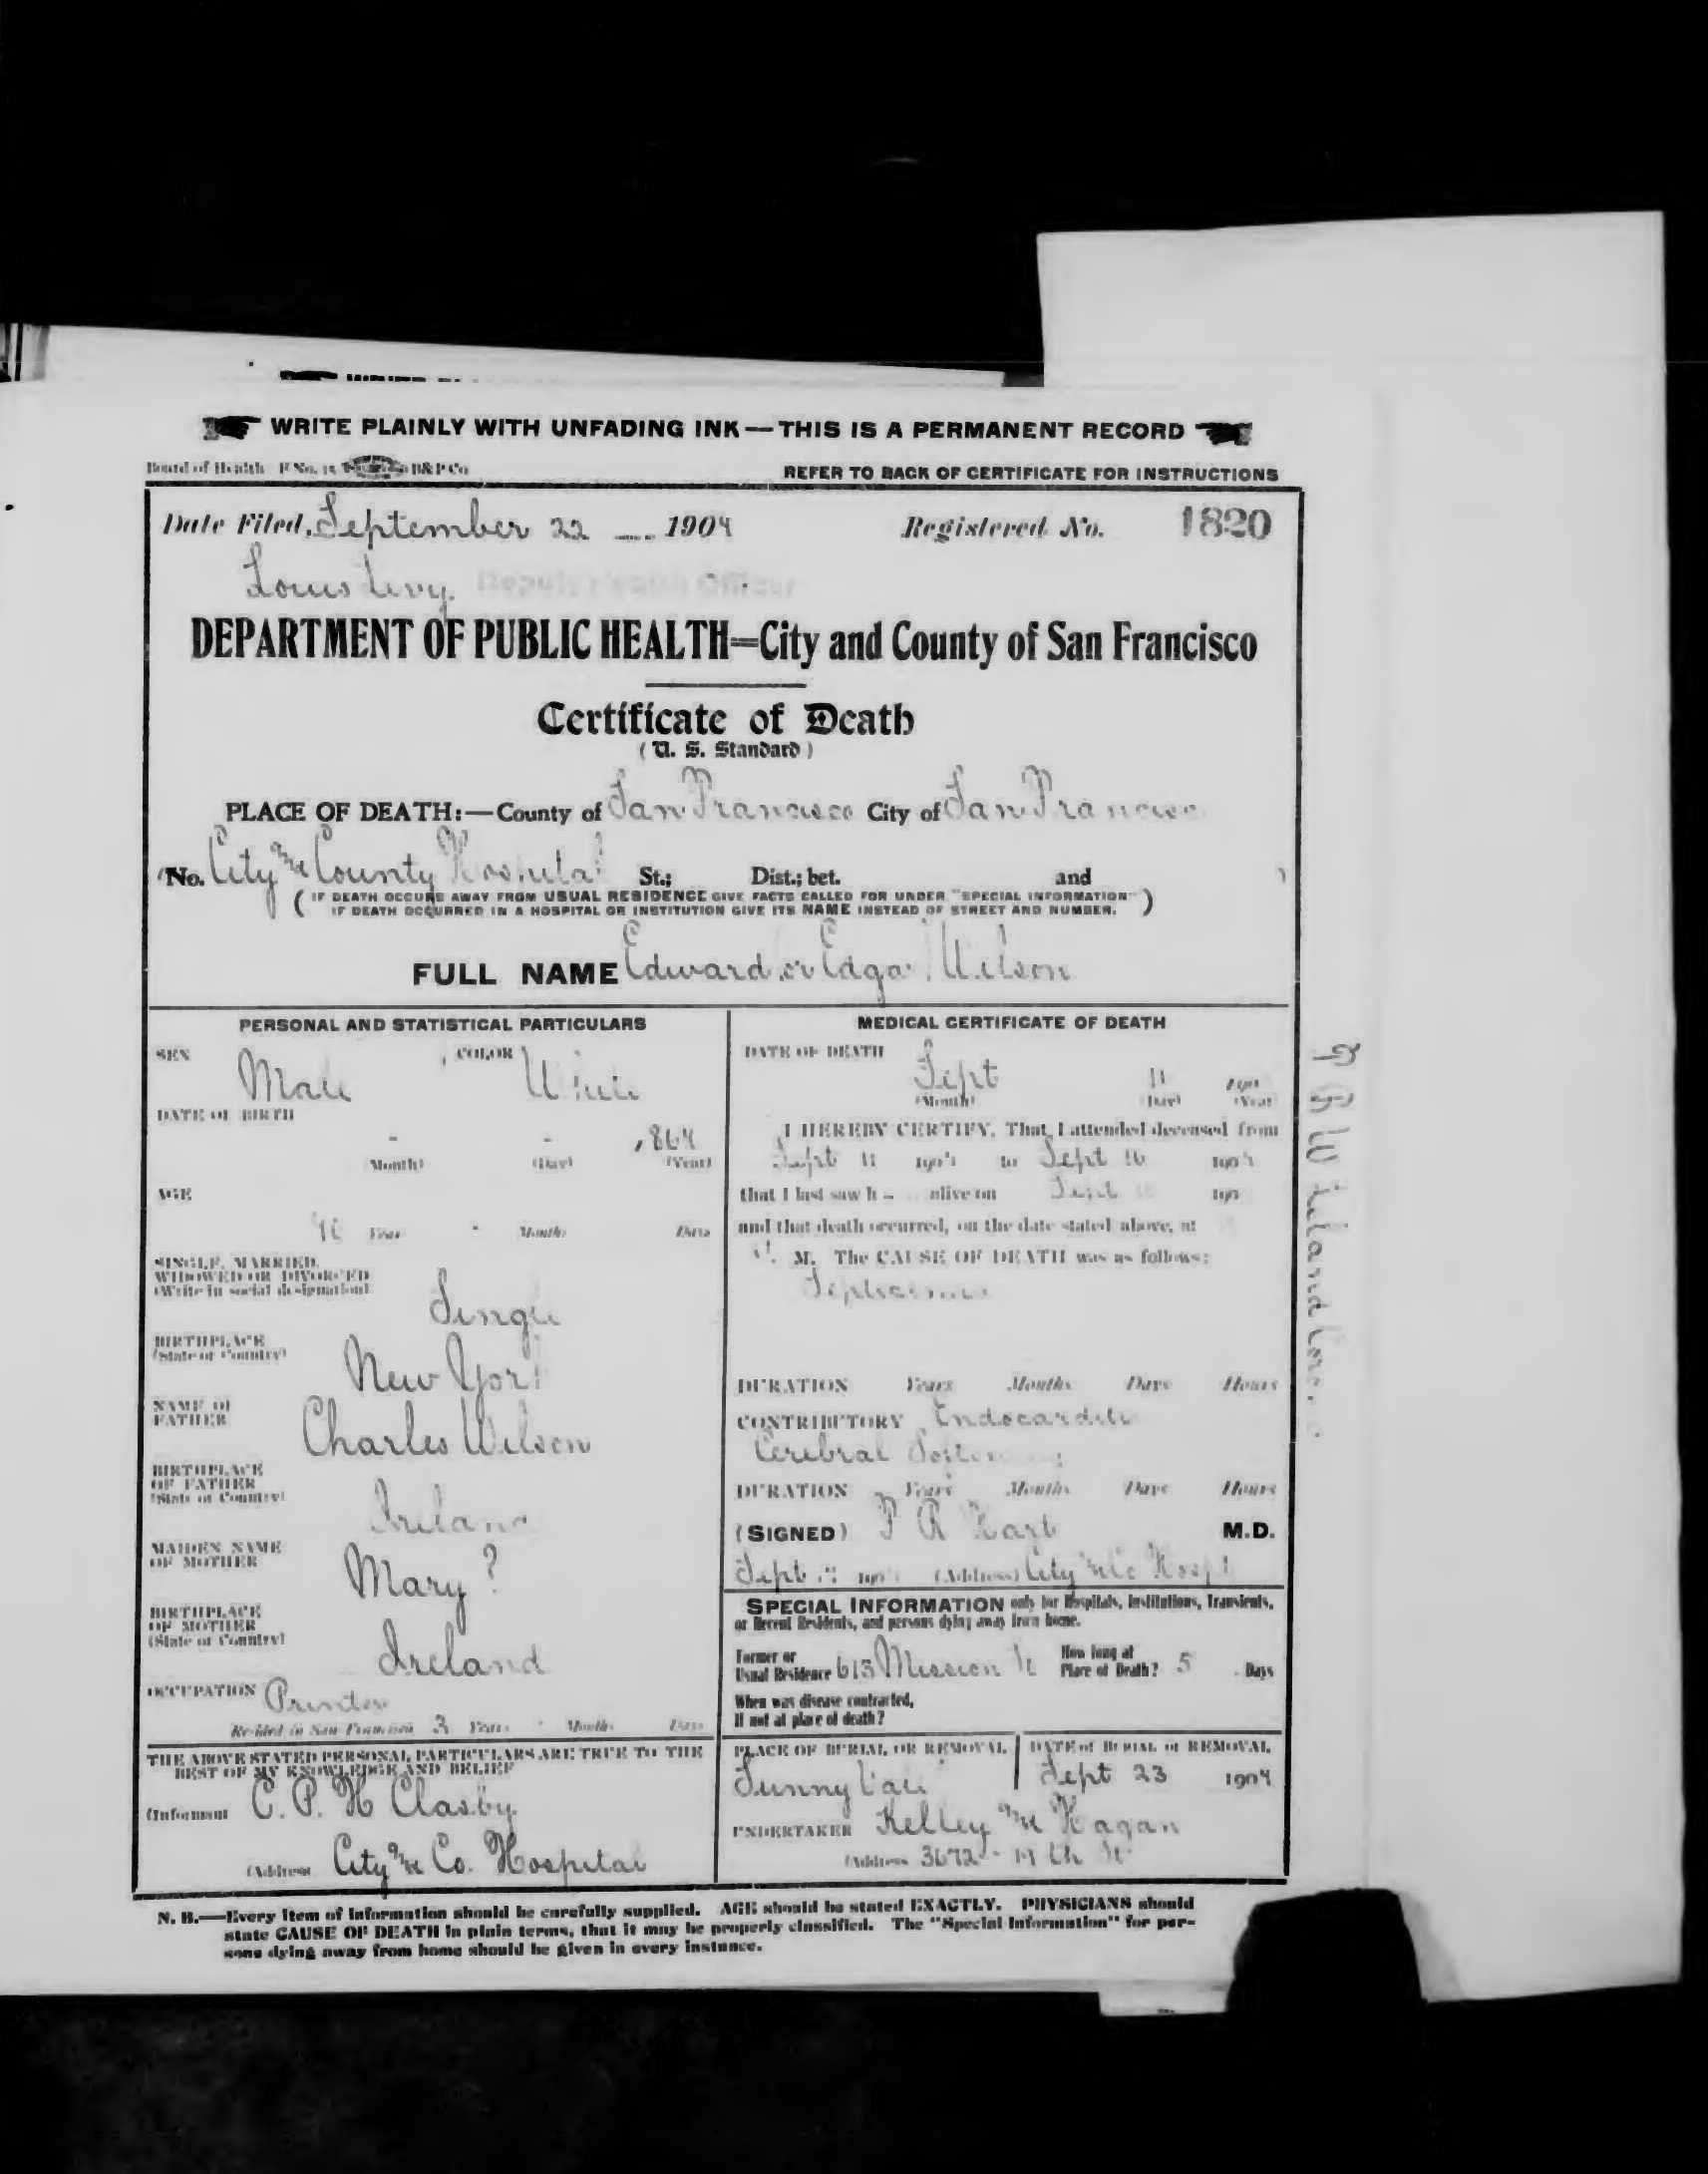 WRITE PLAINLY WITH UNFADING INK — THIS IS A PERMANENT RECORD
Board of Health F No. 15 B&P Co
REFER TO BACK OF CERTIFICATE FOR INSTRUCTIONS
Date Filed, September 22 1904 Registered No. 1820
Louis Levy. Deputy Health Officer
DEPARTMENT OF PUBLIC HEALTH=City and County of San Francisco
Certificate of Death
(U. S. Standard)
PLACE OF DEATH:—County of San Francisco City of San Francisco
(No. City and County Hospital St.; Dist.; bet. and )
(IF DEATH OCCURS AWAY FROM USUAL RESIDENCE GIVE FACTS CALLED FOR UNDER "SPECIAL INFORMATION"
IF DEATH OCCURRED IN A HOSPITAL OR INSTITUTION GIVE ITS NAME INSTEAD OF STREET AND NUMBER.)
FULL NAME Edward or Edgar Wilson
PERSONAL AND STATISTICAL PARTICULARS
SEX Male COLOR White
DATE OF BIRTH
- - 1864
(Month) (Day) (Year)
AGE
40 Years - Months Days
SINGLE, MARRIED,
WIDOWED OR DIVORCED
(Write in social designation)
Single
BIRTHPLACE
(State or Country)
New York
NAME OF
FATHER
Charles Wilson
BIRTHPLACE
OF FATHER
(State or Country)
Ireland
MAIDEN NAME
OF MOTHER
Mary ?
BIRTHPLACE
OF MOTHER
(State or Country)
Ireland
OCCUPATION Printer
Resided in San Francisco 3 Years - Months Days
THE ABOVE STATED PERSONAL PARTICULARS ARE TRUE TO THE
BEST OF MY KNOWLEDGE AND BELIEF
(Informant C. P. H Clasby
(Address City and Co. Hospital
MEDICAL CERTIFICATE OF DEATH
DATE OF DEATH
Sept 190
(Month) (Day) (Year)
I HEREBY CERTIFY, That I attended deceased from
Sept 11 1904 to Sept 16 1904
that I last saw h alive on Sept 190
and that death occurred, on the date stated above, at
M. The CAUSE OF DEATH was as follows:
Septicaemia
DURATION Years Months Days Hours
CONTRIBUTORY Endocarditis
Cerebral Softening
DURATION Years Months Days Hours
(SIGNED) R M.D.
Sept 190 (Address) City and Co Hospt
SPECIAL INFORMATION only for Hospitals, Institutions, Transients,
or Recent Residents, and persons dying away from home.
Former or
Usual Residence 613 Mission St How long at
Place of Death? 5 Days
When was disease contracted,
If not at place of death?
PLACE OF BURIAL OR REMOVAL DATE of BURIAL or REMOVAL
Sunny Vale Sept 23 1904
UNDERTAKER Kelley and Hagan
(Address 3672 - 19th St
N. B.—Every item of information should be carefully supplied. AGE should be stated EXACTLY. PHYSICIANS should
state CAUSE OF DEATH in plain terms, that it may be properly classified. The "Special Information" for per-
sons dying away from home should be given in every instance.